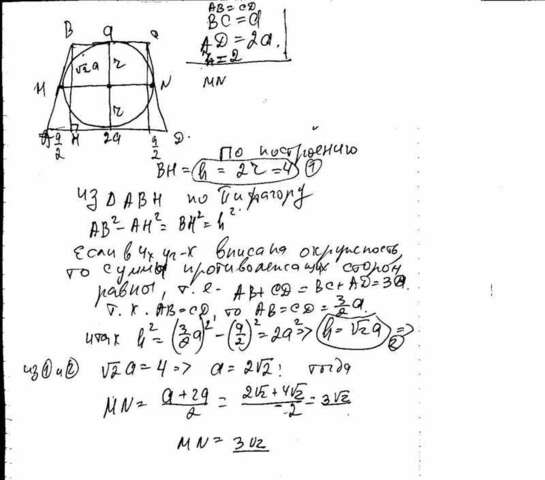 AB=CD
BC=a
AD=2a.
r=2
MN
B a
√2a r
M N
r
A a/2 H 2a a/2 D.
По построению
BH=h=2r=4 ①
Из ΔABH по Пифагору
AB²-AH²=BH²=h².
Если в 4х уг-к вписана окружность
то суммы противолежащих сторон
равны, т.е. AB+CD=BC+AD=3a.
т.к. AB=CD, то AB=CD=3/2a.
итак h²=(3/2a)²-(a/2)²=2a²⇒ h=√2a ⇒
②
из ① и ② √2a=4⇒ a=2√2; тогда
MN=(a+2a)/2=(2√2+4√2)/2=3√2
MN=3√2